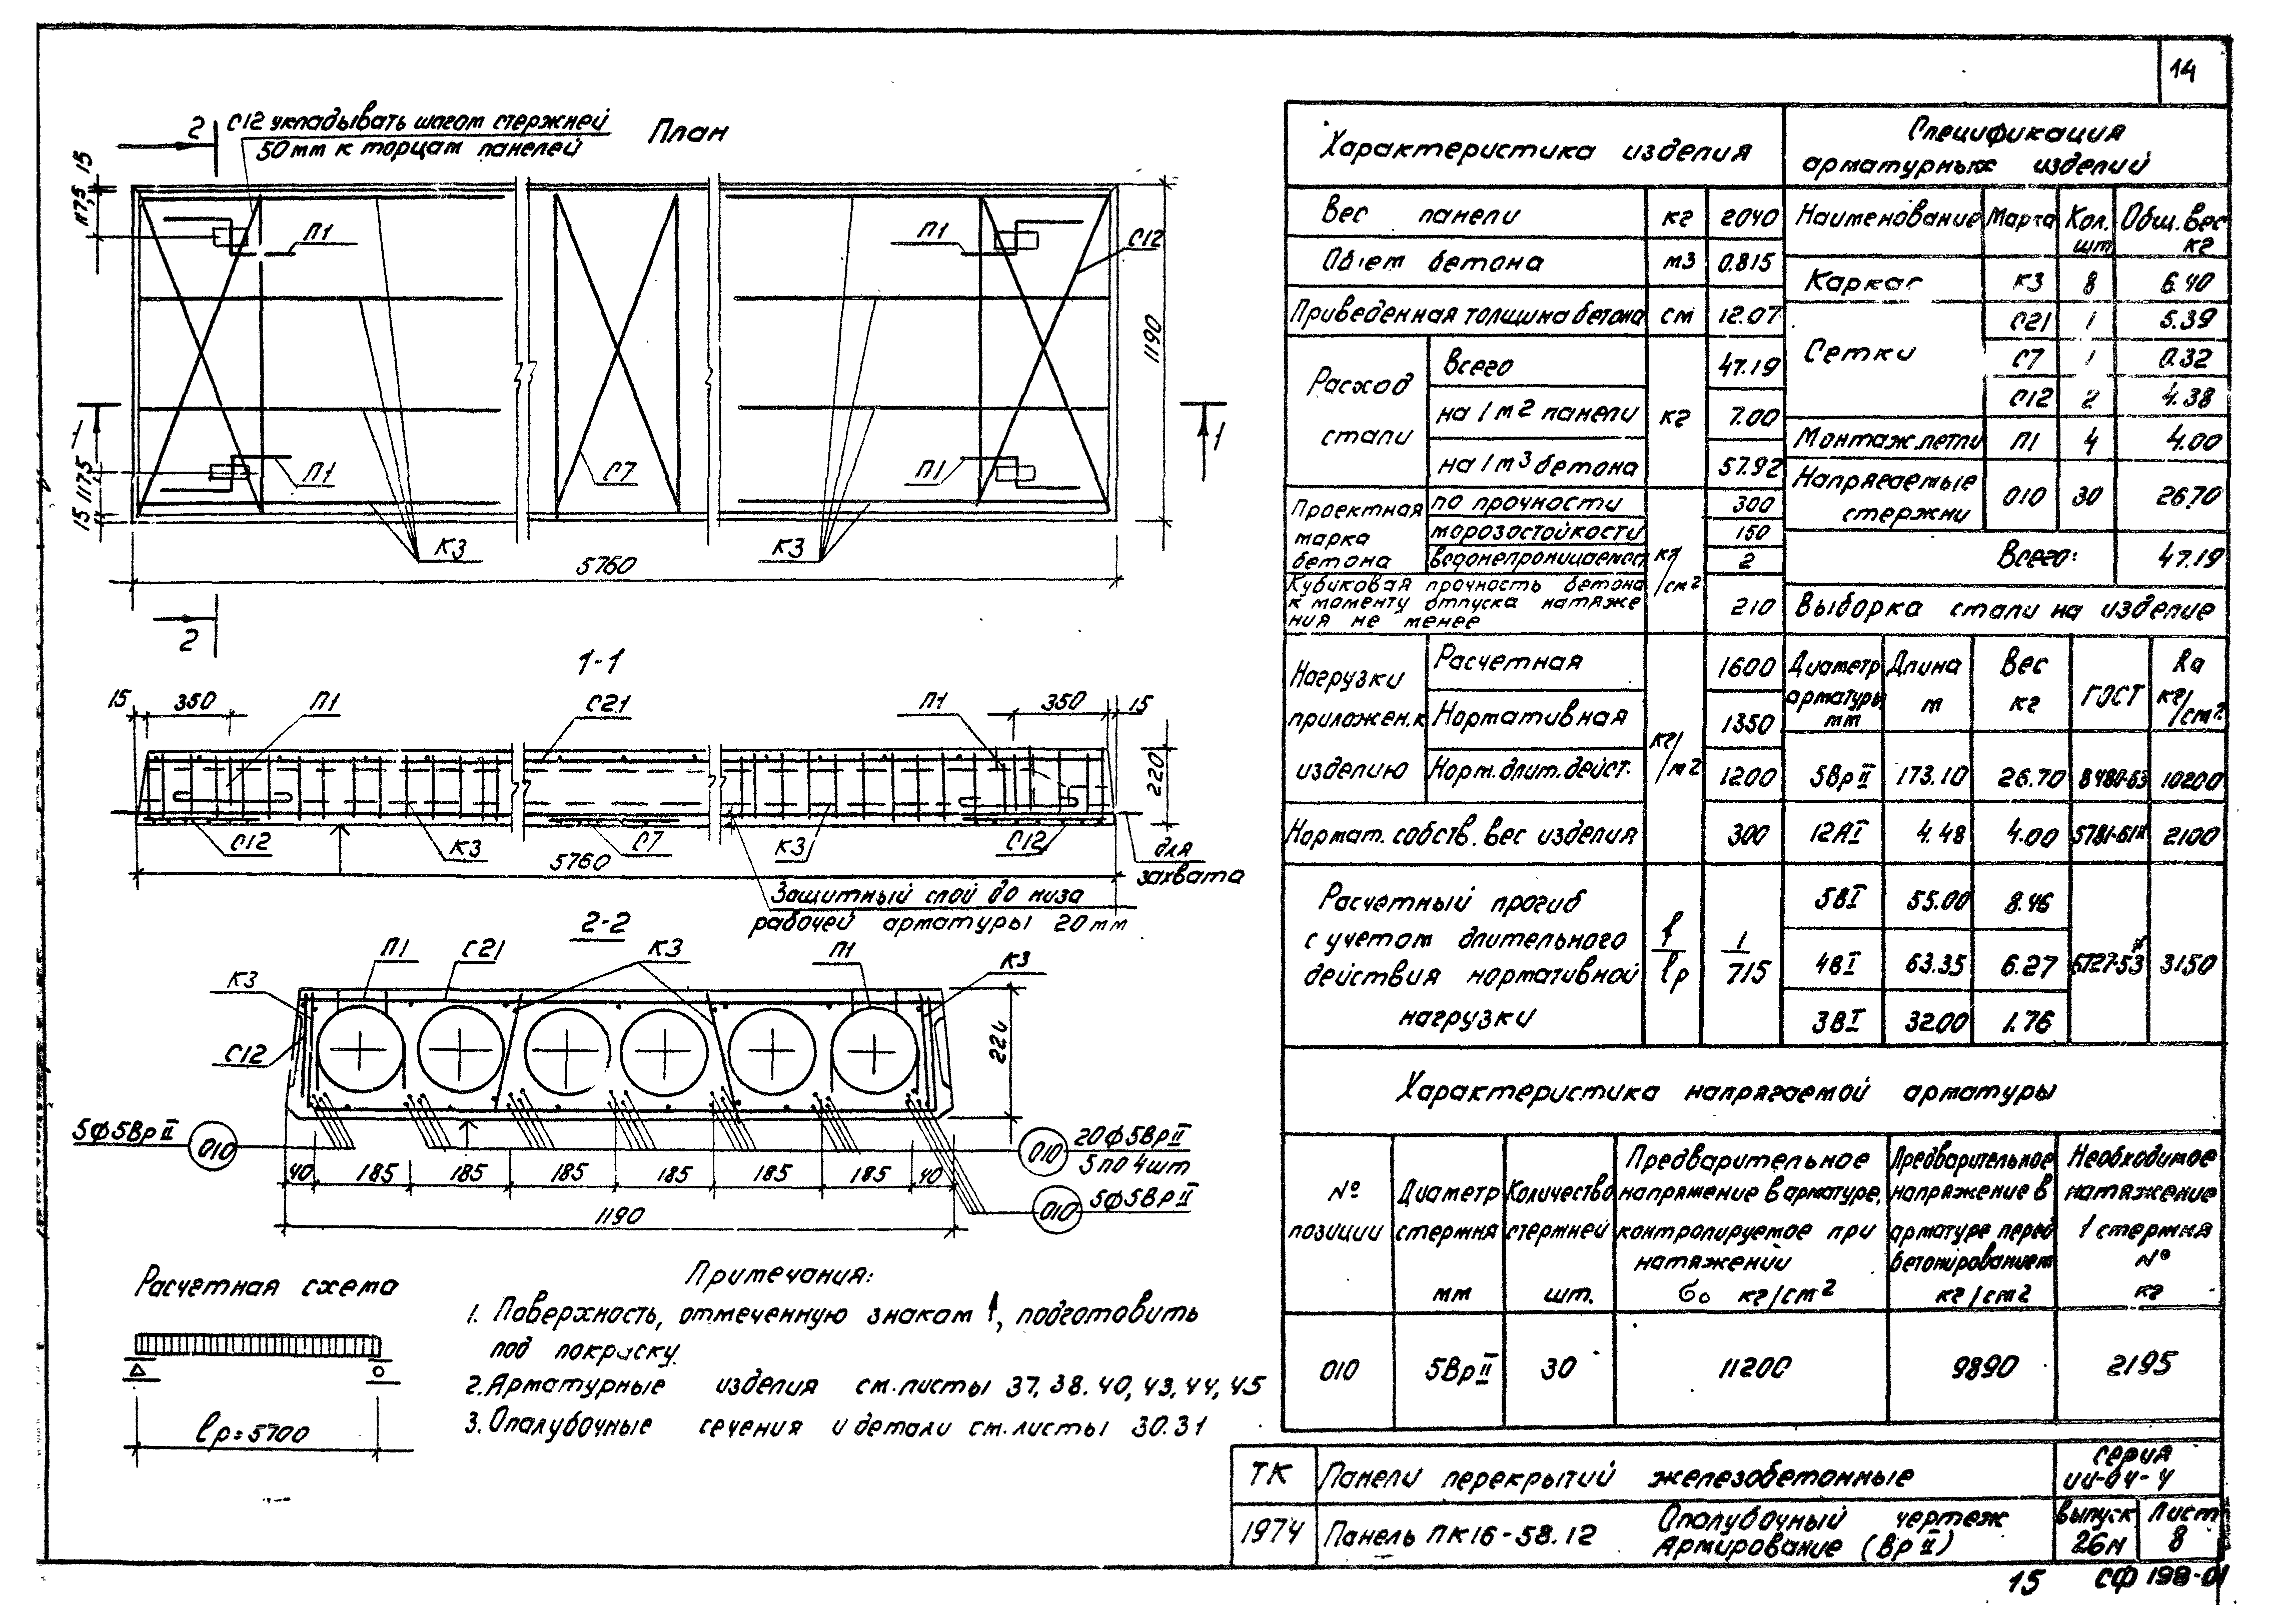 14
С12 укладывать шагом стержней
50мм к торцам панелей
План
2
15
117,5
П1
П1
С12
1190
1
1
П1
С7
П1
15 117,5
К3
К3
5760
2
1-1
15 350 П1 С21 П1 350 15
220
С12 К3 С7 К3 С12
5760
для
захвата
Защитный слой до низа
рабочей арматуры 20мм
2-2
П1 С21 К3 П1 К3
К3
С12
5ф5ВрII 010
010 20ф5ВрII
5 по 4шт
40 185 185 185 185 185 185 40
010 5ф5ВрII
1190
Расчетная схема
lр=5700
Примечания:
1. Поверхность, отмеченную знаком ↑, подготовить
под покраску.
2. Арматурные изделия см. листы 37, 38. 40, 43, 44, 45
3. Опалубочные сечения и детали см. листы 30.31
Характеристика изделия
Вес панели кг 2040
Объем бетона м3 0.815
Приведенная толщина бетона см 12.07
Расход стали кг
Всего 47.19
на 1м2 панели 7.00
на 1м3 бетона 57.92
Проектная марка бетона кг/см2
по прочности 300
морозостойкости 150
водонепроницаемост. 2
Кубиковая прочность бетона
к моменту отпуска натяже
ния не менее 210
Нагрузки приложен. к изделию кг/м2
Расчетная 1600
Нормативная 1350
Норм. длит. дейст. 1200
Нормат. собств. вес изделия 300
Расчетный прогиб
с учетом длительного
действия нормативной
нагрузки
f/lр 1/715
Спецификация
арматурных изделий
Наименование Марка Кол. шт Общ. вес кг
Каркас К3 8 6.40
Сетки С21 1 5.39
С7 1 0.32
С12 2 4.38
Монтаж. петли П1 4 4.00
Напрягаемые
стержни 010 30 26.70
Всего: 47.19
Выборка стали на изделие
Диаметр арматуры мм Длина м Вес кг ГОСТ Rа кг/см2
5ВрII 173.10 26.70 8480-63 10200
12АI 4.48 4.00 5781-61 2100
5ВI 55.00 8.46
4ВI 63.35 6.27 6727-53 3150
3ВI 32.00 1.76
Характеристика напрягаемой арматуры
№ позиции
Диаметр стержня мм
Количество стержней шт.
Предварительное напряжение в арматуре, контролируемое при натяжений σо кг/см2
Предварительное напряжение в арматуре перед бетонированием кг/см2
Необходимое натяжение 1 стержня N° кг
010 5ВрII 30 11200 9890 2195
ТК Панели перекрытий железобетонные серия ИИ-04-4
1974 Панель ПК16-58.12 Опалубочный чертеж
Армирование (ВрII) выпуск 26м Лист 8
15 СФ 198-01